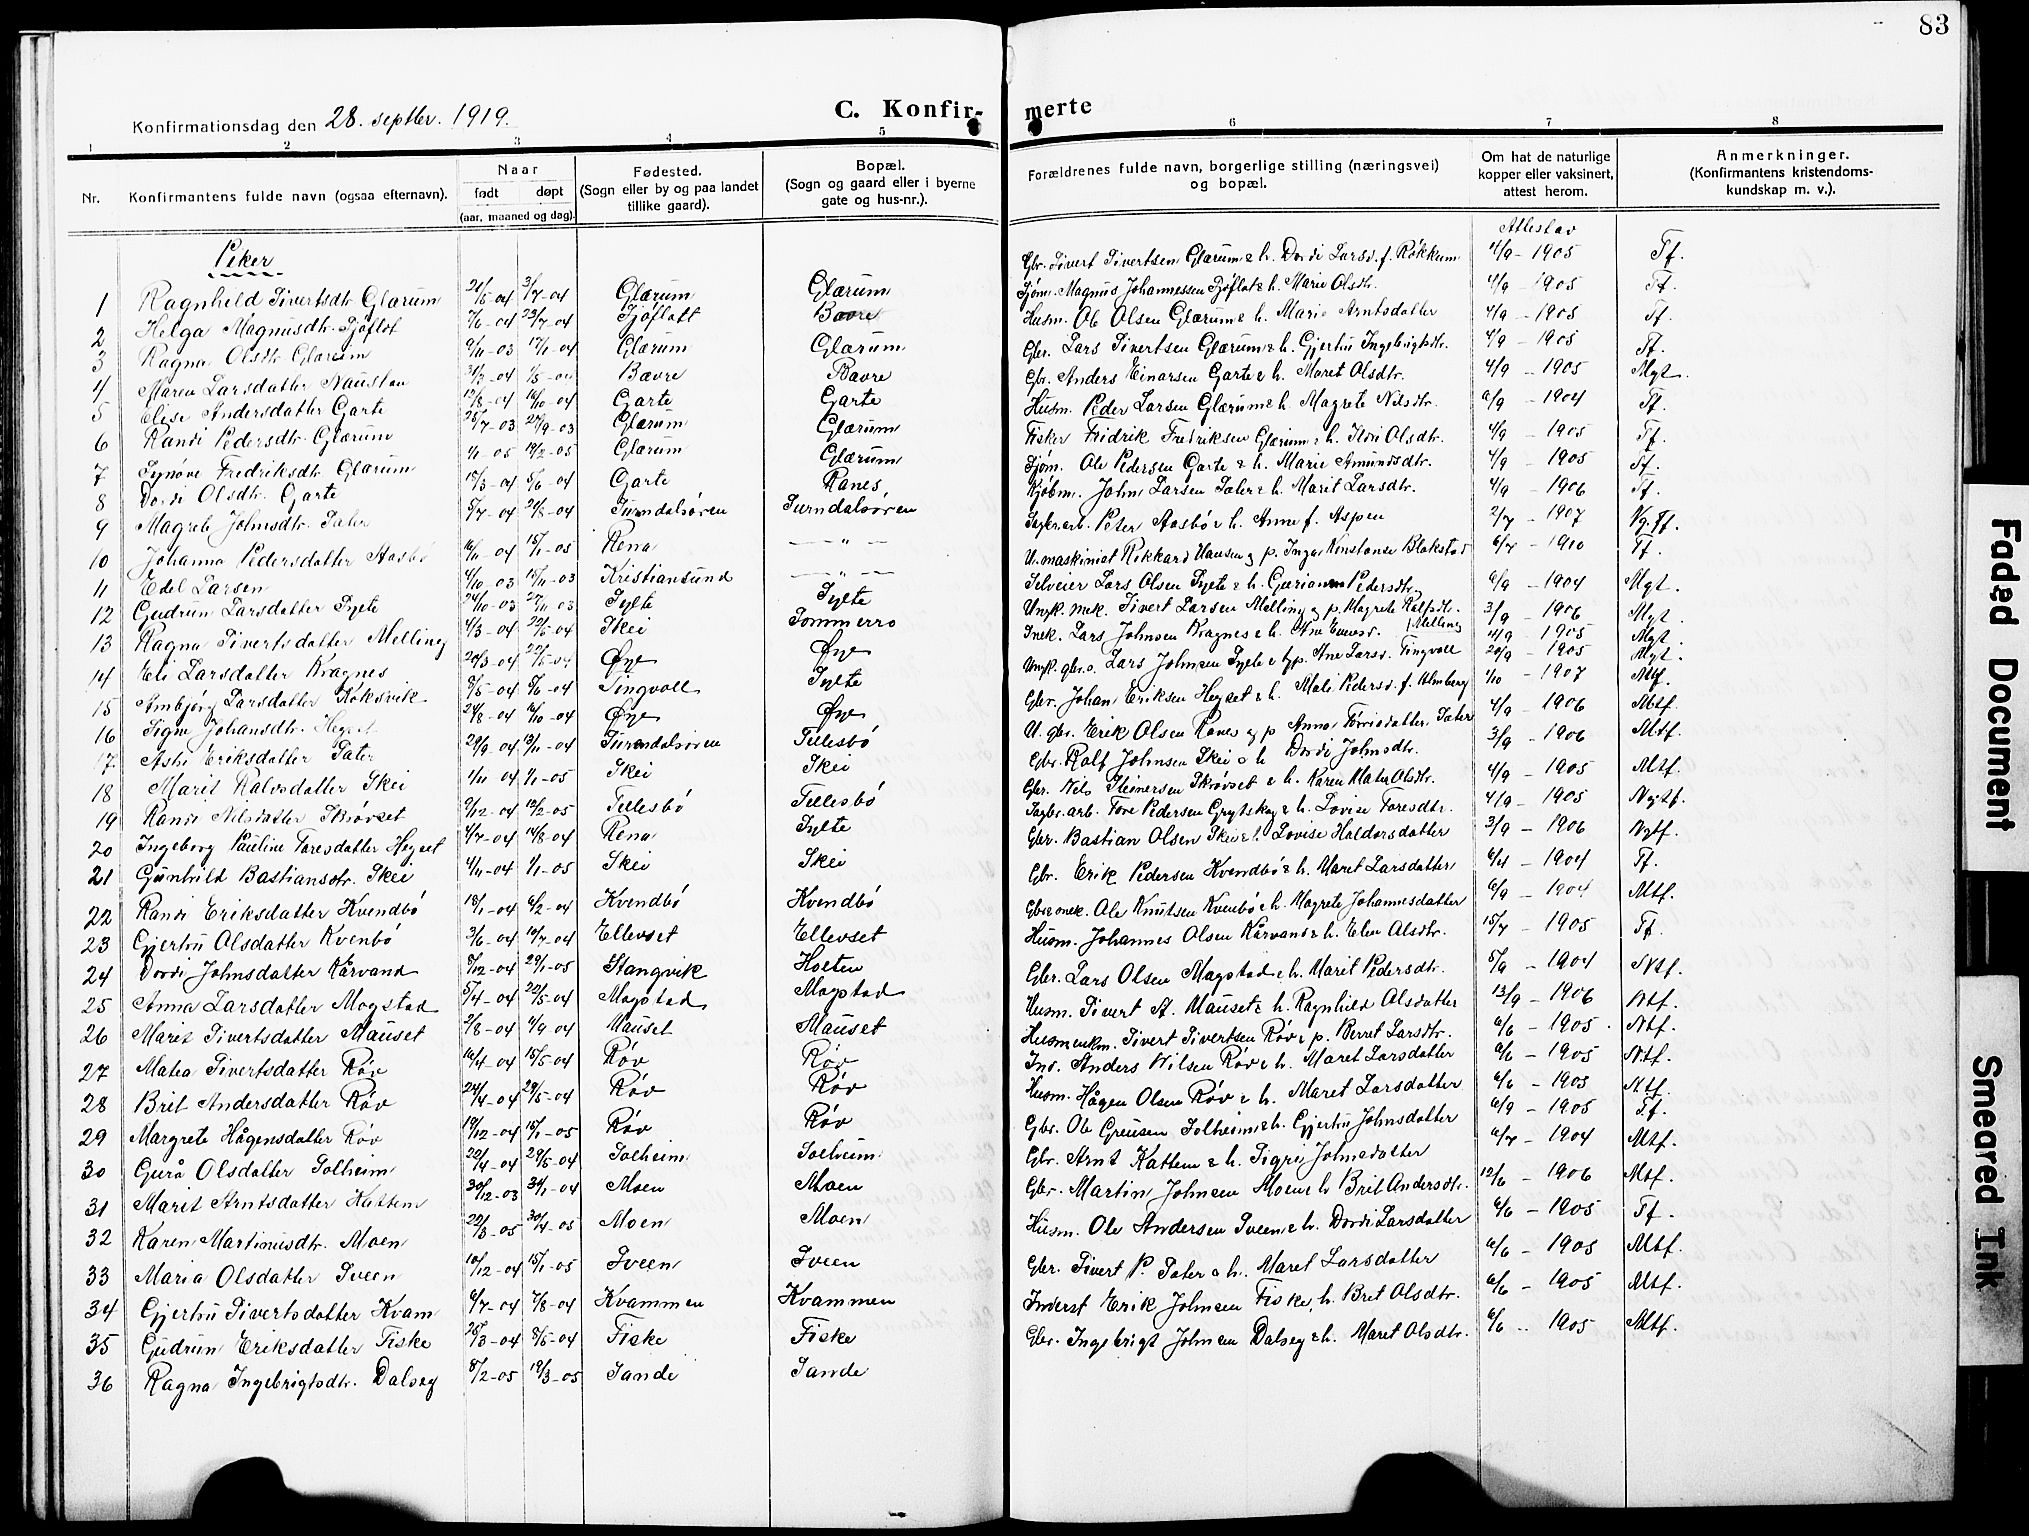 83
Konfirmationsdag den 28. septbr. 1919.
C. Konfirmerte
1 2 3 4 5 6 7 8
Nr. Konfirmantens fulde navn (ogsaa efternavn). Naar født døpt (aar, maaned og dag). Fødested. (Sogn eller by og paa landet tillike gaard). Bopæl. (Sogn og gaard eller i byerne gate og hus-nr.). Forældrenes fulde navn, borgerlige stilling (næringsvei) og bopæl. Om hat de naturlige kopper eller vaksinert, attest herom. Anmerkninger. (Konfirmantens kristendoms-kundskap m. v.).
Piker
Attestav
1 Ragnhild Sivertsdtr. Glærum 21/5-04 3/7-04 Glærum Glærum Gbr. Sivert Sivertsen Glærum & h. Dordi Larsd. f. Røkkum 4/9-1905 Tf.
2 Helga Magnusdtr. Sjøflot 7/6-04 23/7-04 Sjøflott Bævre Sjøm. Magnus Johannessen Sjøflot & h. Marie Olsdtr. 4/9-1905 Tf.
3 Ragna Olsdtr. Glærum 9/11-03 17/1-04 Glærum Glærum Husm. Ole Olsen Glærum & h. Marie Arntsdatter 4/9-1905 Tf.
4 Maren Larsdatter Naustan 31/3-04 1/5-04 Bævre Bævre Gbr. Lars Sivertsen Glærum & h. Gjertru Ingebrigtsdtr. 4/9-1905 Tf.
5 Elise Andersdatter Garte 12/8-04 16/10-04 Garte Garte Gbr. Anders Einarsen Garte & h. Maret Olsdtr. 4/9-1905 Mgt.
6 Randi Pedersdtr. Glærum 25/7-03 27/9-03 Glærum Glærum Husm. Peder Larsen Glærum & h. Magrete Nilsdtr. 6/9-1904 Tf.
7 Synøve Fredriksdtr. Glærum 1/1-05 12/2-05 Glærum Glærum Fisker Fridrik Fredriksen Glærum & h. Ildri Olsdtr. 4/9-1905 Tf.
8 Dordi Olsdtr. Garte 15/3-04 5/6-04 Garte Ranes Sjøm. Ole Pedersen Garte & h. Marie Amundsdtr. 4/9-1905 Tf.
9 Magrete Johnsdtr. Sæter 5/7-04 21/8-04 Surndalsøren Surndalsøren Kjøbm. John Larsen Sæter & h. Marit Larsdtr. 4/9-1906 Tf.
10 Johanna Pedersdatter Aasbø 16/11-04 15/1-05 Rena —„— Sagbr.arb. Peter Aasbø & h. Anne f. Aspen 2/7-1907 Ng.Tf.
11 Edel Larsen 4/10-03 15/11-03 Kristiansund —„— U. maskinist Rikkard Hansen og p. Inga Konstanse Blakstad 6/7-1910 Tf.
12 Gudrun Larsdatter Sylte 24/10-03 27/11 03 Sylte Sylte Selveier Lars Olsen Sylte & h. Gurianna Pedersdtr. 6/9-1904 Mgt.
13 Ragna Sivertsdatter Melling 4/3-04 22/5-04 Skei Sommerro Ungk. mek. Sivert Larsen Melling og p. Magrete Ralfsdtr. Melling 3/9-1906 Mgt.
14 Eli Larsdatter Kragnes 20/3-04 22/5-04 Øye Øye Snek. Lars Johnsen Kragnes & h. Ane Evensd. 4/9-1905 Mgt.
15 Ambjørg Larsdatter Koksvik 8/5-04 5/6-04 Tingvoll Sylte Ungk. gbr.s. Lars Johnsen Sylte & p. Ane Larsd. Tingvoll 20/9-1905 Mgt.
16 Signe Johansdtr. Hegset 24/8-04 9/10-04 Øye Øye Gbr. Johan Eriksen Hegset & h. Mali Pedersd. f. Almberg 1/10-1907 Mtf.
17 Astri Eriksdatter Sæter 29/9-04 13/11-04 Surendalsøren Tellesbø U. gbr. Erik Olsen Ranes og p. Anna Torrisdatter Sæter 4/9-1906 Mtf.
18 Marit Ralvsdatter Skei 1/11 04 1/1-05 Skei Skei Gbr. Ralf Johnsen Skei & h. Dordi Johnsdtr. 3/9-1906 Mtf.
19 Randi Nilsdatter Skrøvset 9/12-04 12/2-05 Tellesbø Tellesbø Gbr. Nils Steinersen Skrøvset & h. Karen Matea Olsdtr. 4/9-1905 Mtf.
20 Ingeborg Pauline Toresdatter Hegset 4/7-04 14/8-04 Rena Sylte Sagbr.arb. Tore Pedersen Grytskog & h. Lovise Toresdtr. 4/9-1905 Ngtf.
21 Gunhild Bastiansdtr. Skei 4/11-04 1/1-05 Skei Skei Gbr. Bastian Olsen Skei & h. Lovise Haldorsdatter 3/9-1906 Ngtf.
22 Randi Eriksdatter Kvendbø 18/1-04 6/2-04 Kvendbø Kvendbø Gbr. Erik Pedersen Kvendbø & h. Maret Larsdatter 6/4-1904 Tf.
23 Gjertru Olsdatter Kvenbø 3/6-04 10/7-04 Ellevset Ellevset Gbr. & snek. Ole Knutsen Kvenbø & h. Magrete Johannesdatter 6/9-1904 Mtf.
24 Dordi Johnsdatter Kårvand 8/12-04 29/1-05 Stangvik Holten Husm. Johannes Olsen Kårvand & h. Elen Olsdtr. 15/7-1905 Tf.
25 Anna Larsdatter Mogstad 5/4-04 22/5-04 Mogstad Mogstad Gbr. Lars Olsen Mogstad & h. Marit Pedersdtr. 5/9-1904 Ntf.
26 Marit Sivertsdatter Mauset 2/8-04 4/9 04 Mauset Mauset Husm. Sivert A. Mauset & h. Ragnhild Olsdatter 13/9-1906 Ntf.
27 Matea Sivertsdatter Røv 16/4-04 15/5-04 Røv Røv Husmenkm. Sivert Sivertsen Røv & p. Berret Larsdtr. 6/6-1905. Ntf.
28 Brit Andersdatter Røv 24/4-04 29/5-04 Røv Røv Ind. Anders Nilsen Røv & h. Maret Larsdatter 6/6-1905 Ntf.
29 Margrete Hågensdatter Røv 19/12-04 15/1-05 Røv Røv Husm. Hågen Olsen Røv & h. Maret Larsdatter 6/6-1905 Ntf.
30 Gurå Olsdatter Solheim 22/4-04 29/5-04 Solheim Solheim Gbr. Ole Greusen Solheim & h. Gjertru Johnsdatter 6/9-1905 Tf.
31 Marit Arntsdatter Kattem 30/12-03 31/1-04 Moen Moen Gbr. Arnt Kattem & h. Sigri Johnsdatter 6/7-1904 Mtf.
32 Karen Martinusdtr. Moen 22/3-05 30/4-05 Moen Moen Gbr. Martin Johnsen Moen & h. Brit Andersdtr. 12/6-1906 Mtf.
33 Maria Olsdatter Sveen 10/12-04 15/1-05 Sveen Sveen Husm. Ole Andersen Sveen & h. Dordi Larsdatter 6/6-1905 Tf.
34 Gjertru Sivertsdatter Kvam 6/7-04 7/8-04 Kvammen Kvammen Gbr. Sivert P. Sæter & h. Maret Larsdatter 6/6-1905 Mtf.
35 Gudrun Eriksdatter Fiske 25/3-04 8/5-04 Fiske Fiske Inderst Erik Johnsen Fiske, h. Bret Olsdtr. 6/6-1905 Mtf.
36 Ragna Ingebrigtsdtr. Dalseg 5/2-05 19/3-05 Sande Sande Gbr. Ingebrigt Johnsen Dalseg & h. Maret Olsdtr. 6/6-1905 Mtf.
Faded Document
Smeared Ink